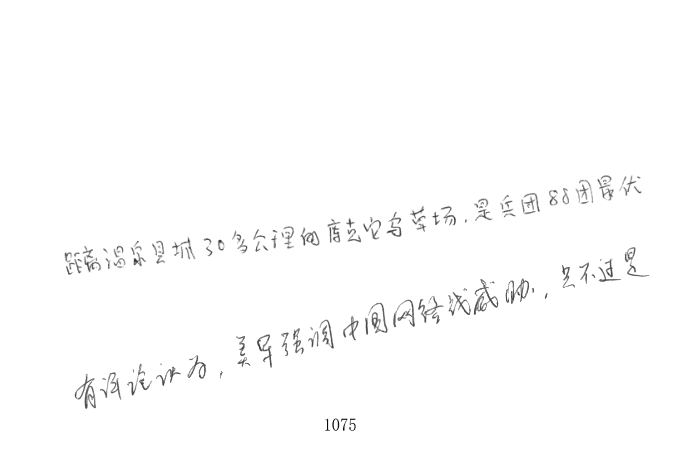 距离温泉县城30多公里的库克它乌草场,是兵团88团最优
有评论认为,美军强调中国网络线威胁,只不过是
1075